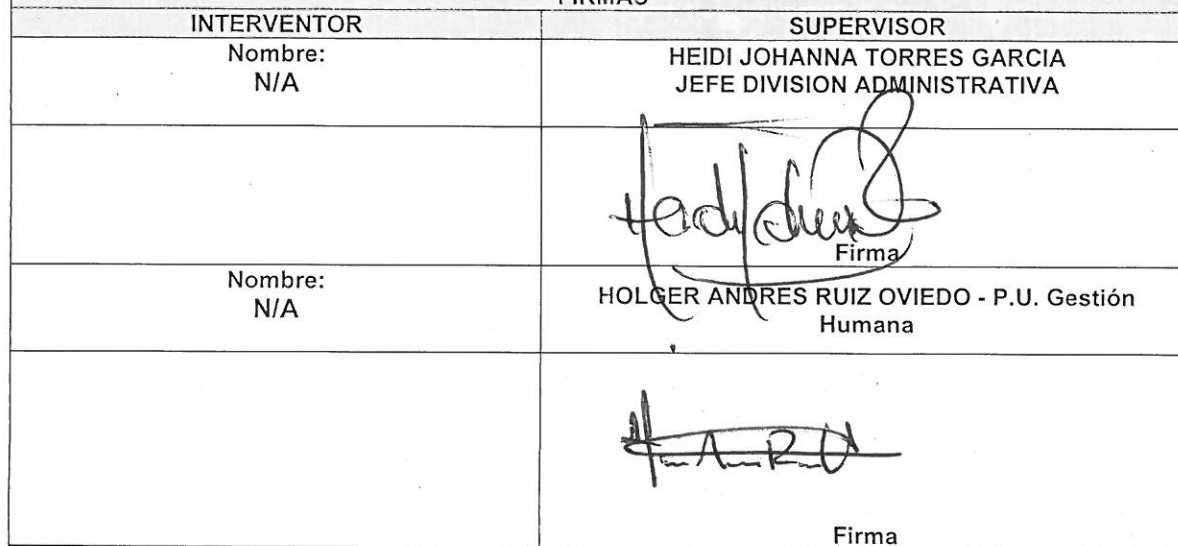 FIRMAS
INTERVENTOR
SUPERVISOR
Nombre:
N/A
HEIDI JOHANNA TORRES GARCIA
JEFE DIVISION ADMINISTRATIVA
Firma
Nombre:
N/A
HOLGER ANDRES RUIZ OVIEDO - P.U. Gestión
Humana
Firma